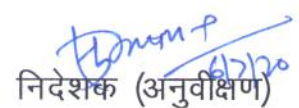 6/7/20
निदेशक (अनुवीक्षण)